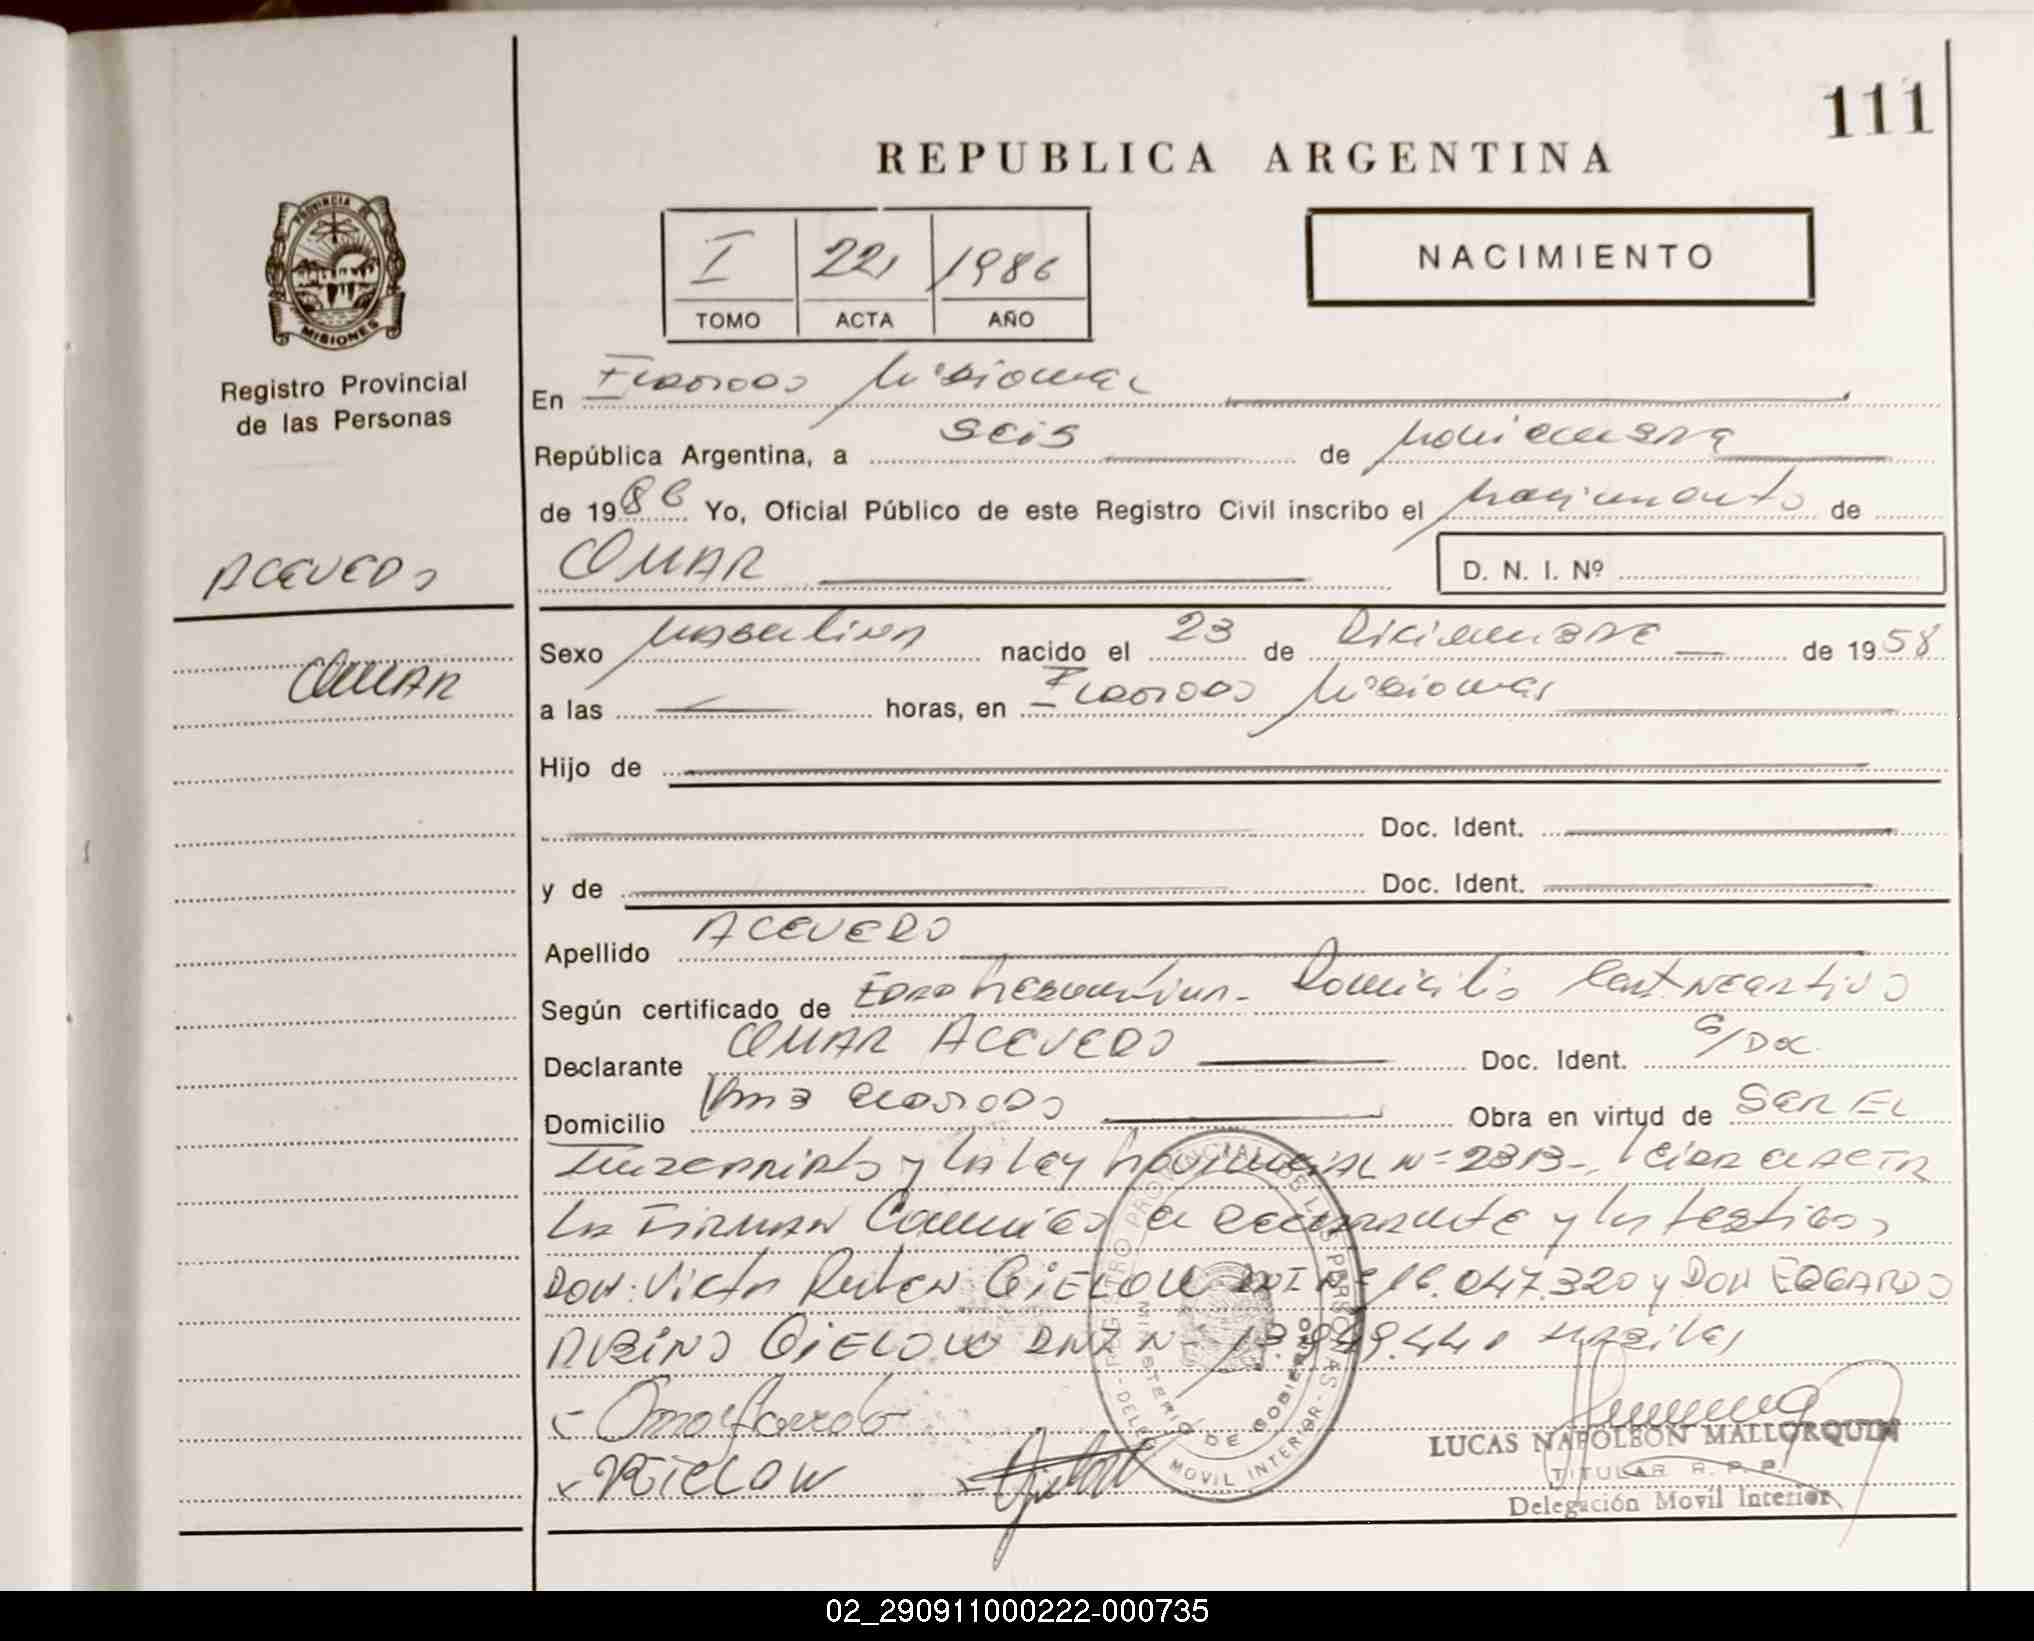 111
REPUBLICA ARGENTINA
PROVINCIA DE
MISIONES
NACIMIENTO
I 221 1986
TOMO ACTA AÑO
Registro Provincial
de las Personas
En Eldorado Misiones
República Argentina, a seis de noviembre
de 1986 Yo, Oficial Público de este Registro Civil inscribo el nacimiento de
OMAR D. N. I. Nº
ACEVEDO
OMAR
Sexo Masculino nacido el 23 de Diciembre de 1958
a las horas, en Eldorado Misiones
Hijo de
Doc. Ident.
y de Doc. Ident.
Apellido ACEVEDO
Según certificado de Edad Domicilio Cert. Negativo
Declarante OMAR ACEVEDO Doc. Ident. S/Doc.
Domicilio Eldorado Obra en virtud de SER EL
Interesado y la Ley Provincial Nº 2313 Leída el ACTA
La Firman Conmigo el declarante y los testigos
DON: Victor Ruben GIELOW DNI Nº 16.047.320 y DON EDGARDO
ALBINO GIELOW DNI Nº 13.949.441 hábiles
REGISTRO PROVINCIAL DE LAS PERSONAS
MINISTERIO DE GOBIERNO
MOVIL INTERIOR
LUCAS NAPOLEON MALLORQUIN
TITULAR R. P. P.
Delegación Movil Interior
02_290911000222-000735